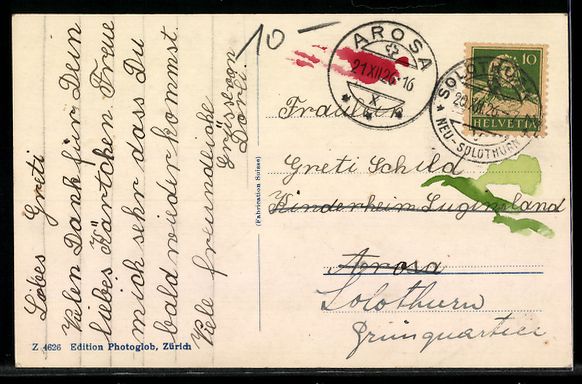 Liebes Greti
Vielen Dank für Dein
liebes Kärtchen Freue
mich sehr dass Du
bald wiederkommst
Viele freundleiche
Grüsse von
Dori
Z 4626 Edition Photoglob, Zürich
(Fabrication Suisse)
10 —
AROSA
21 XII 26-16
X
SOLOTHURN
NEU-SOLOTHURN
10
HELVETIA
Fräulein
Greti Schild
Kinderheim Luginsland
Arosa
Solothurn
Grünquartier